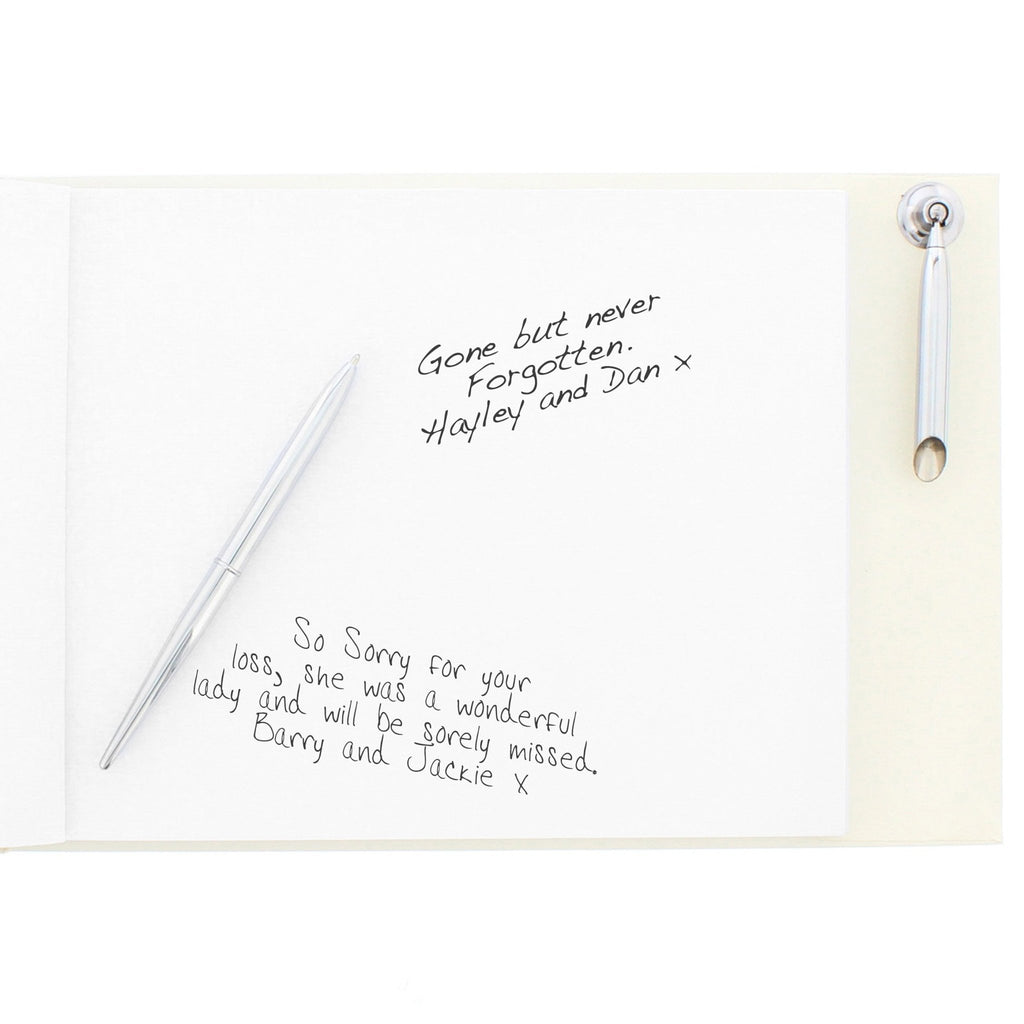 Gone but never
Forgotten.
Hayley and Dan x
So Sorry for your
loss, she was a wonderful
lady and will be sorely missed.
Barry and Jackie x